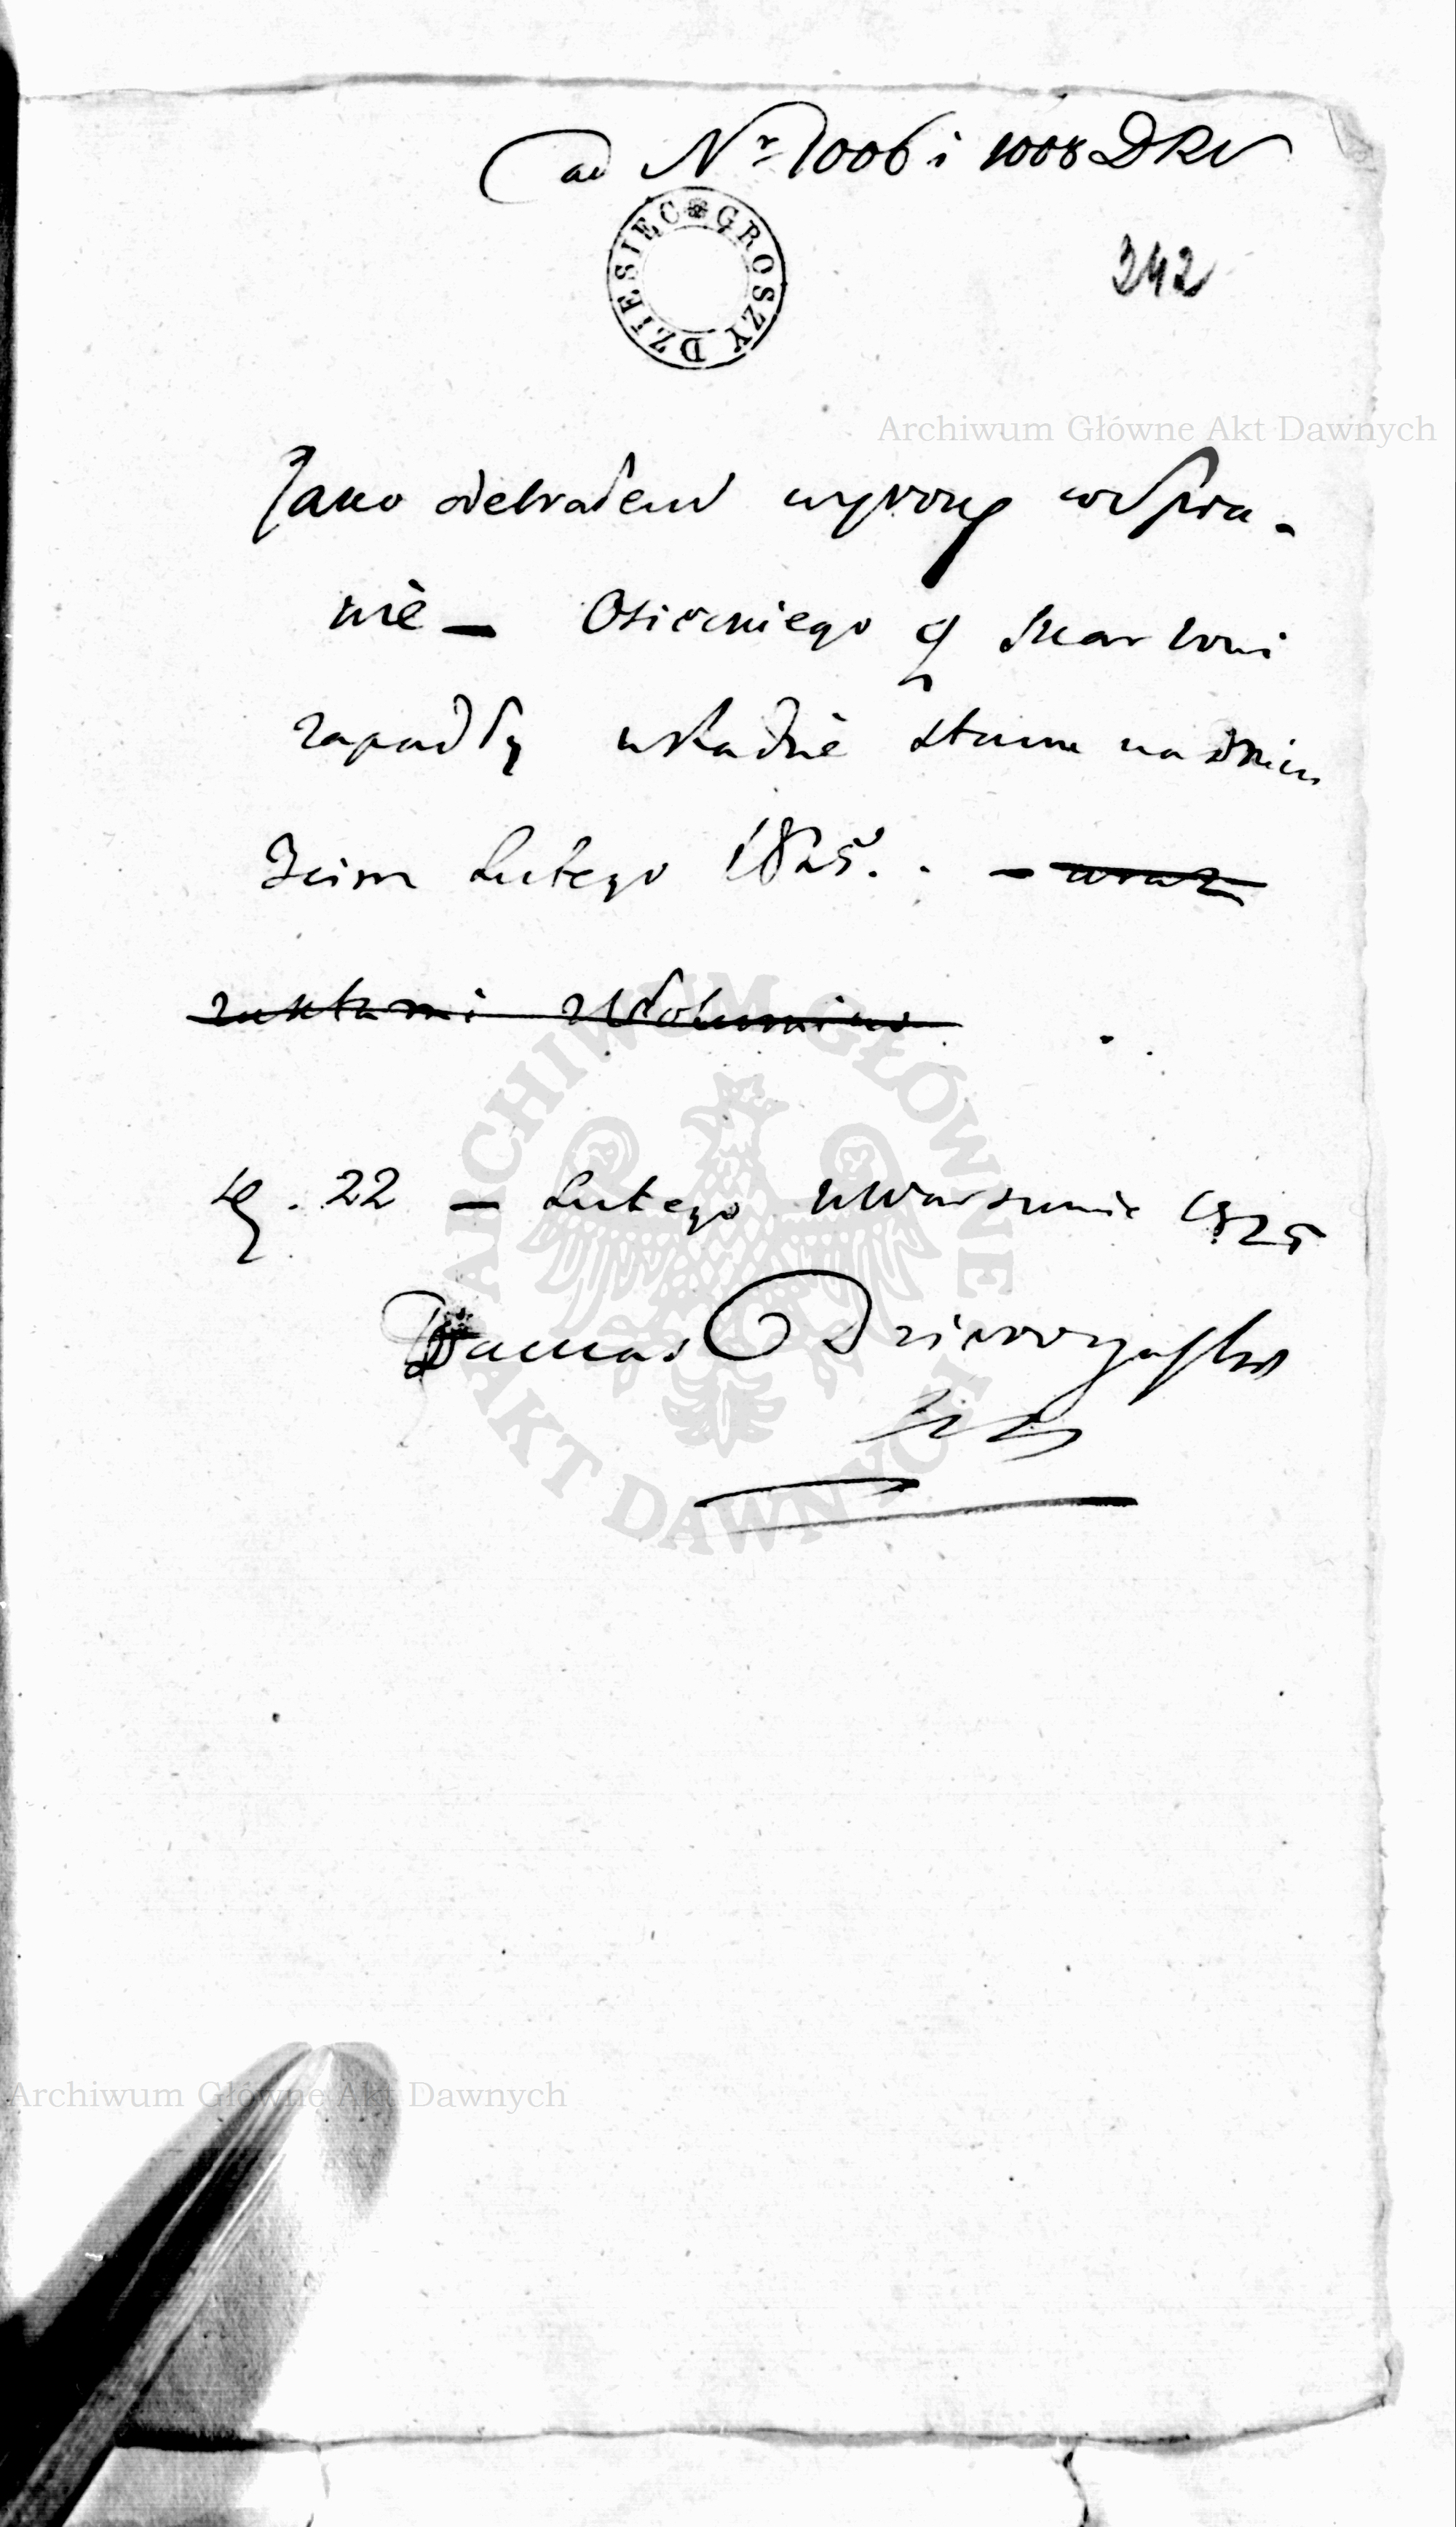 ad Nr 1006 i 1008 DRN
DZIESIĘC GROSZY
242
Archiwum Główne Akt Dawnych
Jako odebrałem wyrok w Spra-
wie – Osieckiego Skarbowi
zapadły w Radzie Stanu na Dniu
Lutego 1825. . – wraz
z aktami
22 – Lutego w Warszawie 1825
ARCHIWUM GŁÓWNE AKT DAWNYCH
Archiwum Główne Akt Dawnych